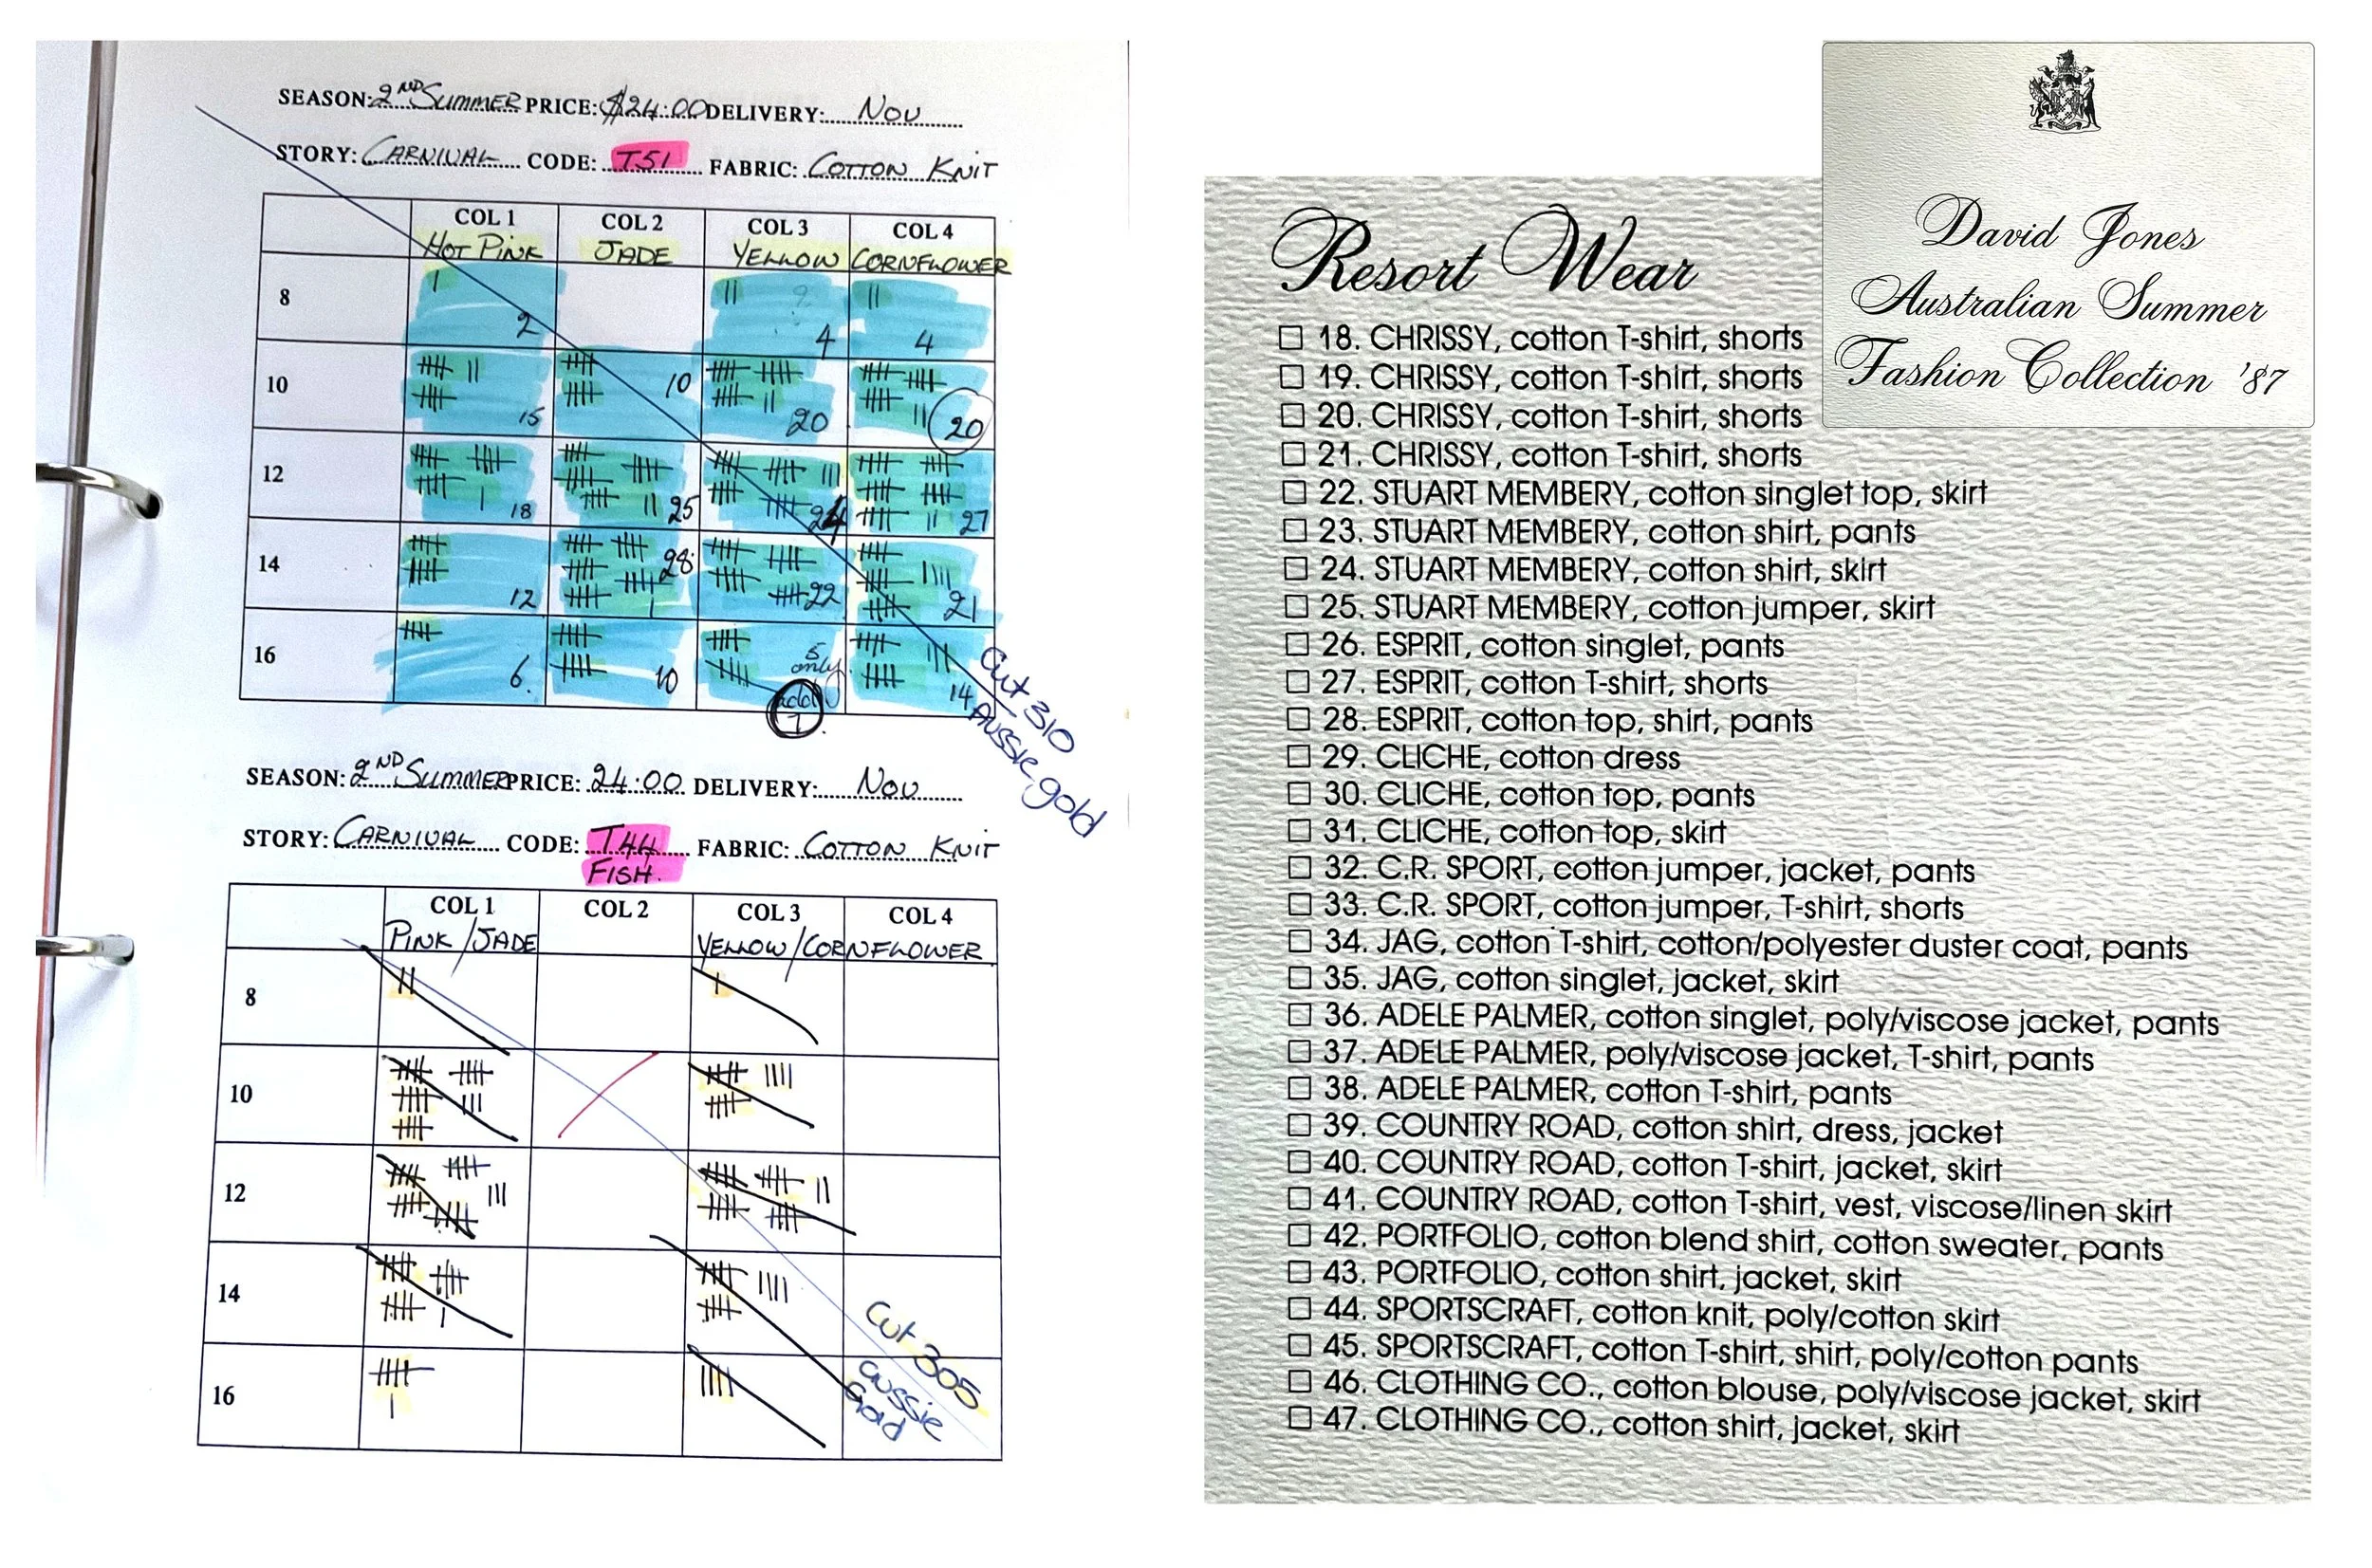 SEASON: 2ND SUMMER PRICE: $24.00 DELIVERY: NOV
STORY: CARNIVAL CODE: T51 FABRIC: COTTON KNIT
COL 1 COL 2 COL 3 COL 4
HOT PINK JADE YELLOW CORNFLOWER
8 2 4 4
10 15 10 20 20
12 18 25 24 27
14 12 28 22 21
16 6. 10 5 only add 1 14
Cut 310
Aussie gold
SEASON: 2ND SUMMER PRICE: 24.00 DELIVERY: NOV
STORY: CARNIVAL CODE: T44 FABRIC: COTTON KNIT
FISH.
COL 1 COL 2 COL 3 COL 4
PINK/JADE YELLOW/CORNFLOWER
8
10
12
14
16
Cut 305
aussie
Gold
Resort Wear
18. CHRISSY, cotton T-shirt, shorts
19. CHRISSY, cotton T-shirt, shorts
20. CHRISSY, cotton T-shirt, shorts
21. CHRISSY, cotton T-shirt, shorts
22. STUART MEMBERY, cotton singlet top, skirt
23. STUART MEMBERY, cotton shirt, pants
24. STUART MEMBERY, cotton shirt, skirt
25. STUART MEMBERY, cotton jumper, skirt
26. ESPRIT, cotton singlet, pants
27. ESPRIT, cotton T-shirt, shorts
28. ESPRIT, cotton top, shirt, pants
29. CLICHE, cotton dress
30. CLICHE, cotton top, pants
31. CLICHE, cotton top, skirt
32. C.R. SPORT, cotton jumper, jacket, pants
33. C.R. SPORT, cotton jumper, T-shirt, shorts
34. JAG, cotton T-shirt, cotton/polyester duster coat, pants
35. JAG, cotton singlet, jacket, skirt
36. ADELE PALMER, cotton singlet, poly/viscose jacket, pants
37. ADELE PALMER, poly/viscose jacket, T-shirt, pants
38. ADELE PALMER, cotton T-shirt, pants
39. COUNTRY ROAD, cotton shirt, dress, jacket
40. COUNTRY ROAD, cotton T-shirt, jacket, skirt
41. COUNTRY ROAD, cotton T-shirt, vest, viscose/linen skirt
42. PORTFOLIO, cotton blend shirt, cotton sweater, pants
43. PORTFOLIO, cotton shirt, jacket, skirt
44. SPORTSCRAFT, cotton knit, poly/cotton skirt
45. SPORTSCRAFT, cotton T-shirt, shirt, poly/cotton pants
46. CLOTHING CO., cotton blouse, poly/viscose jacket, skirt
47. CLOTHING CO., cotton shirt, jacket, skirt
David Jones
Australian Summer
Fashion Collection '87